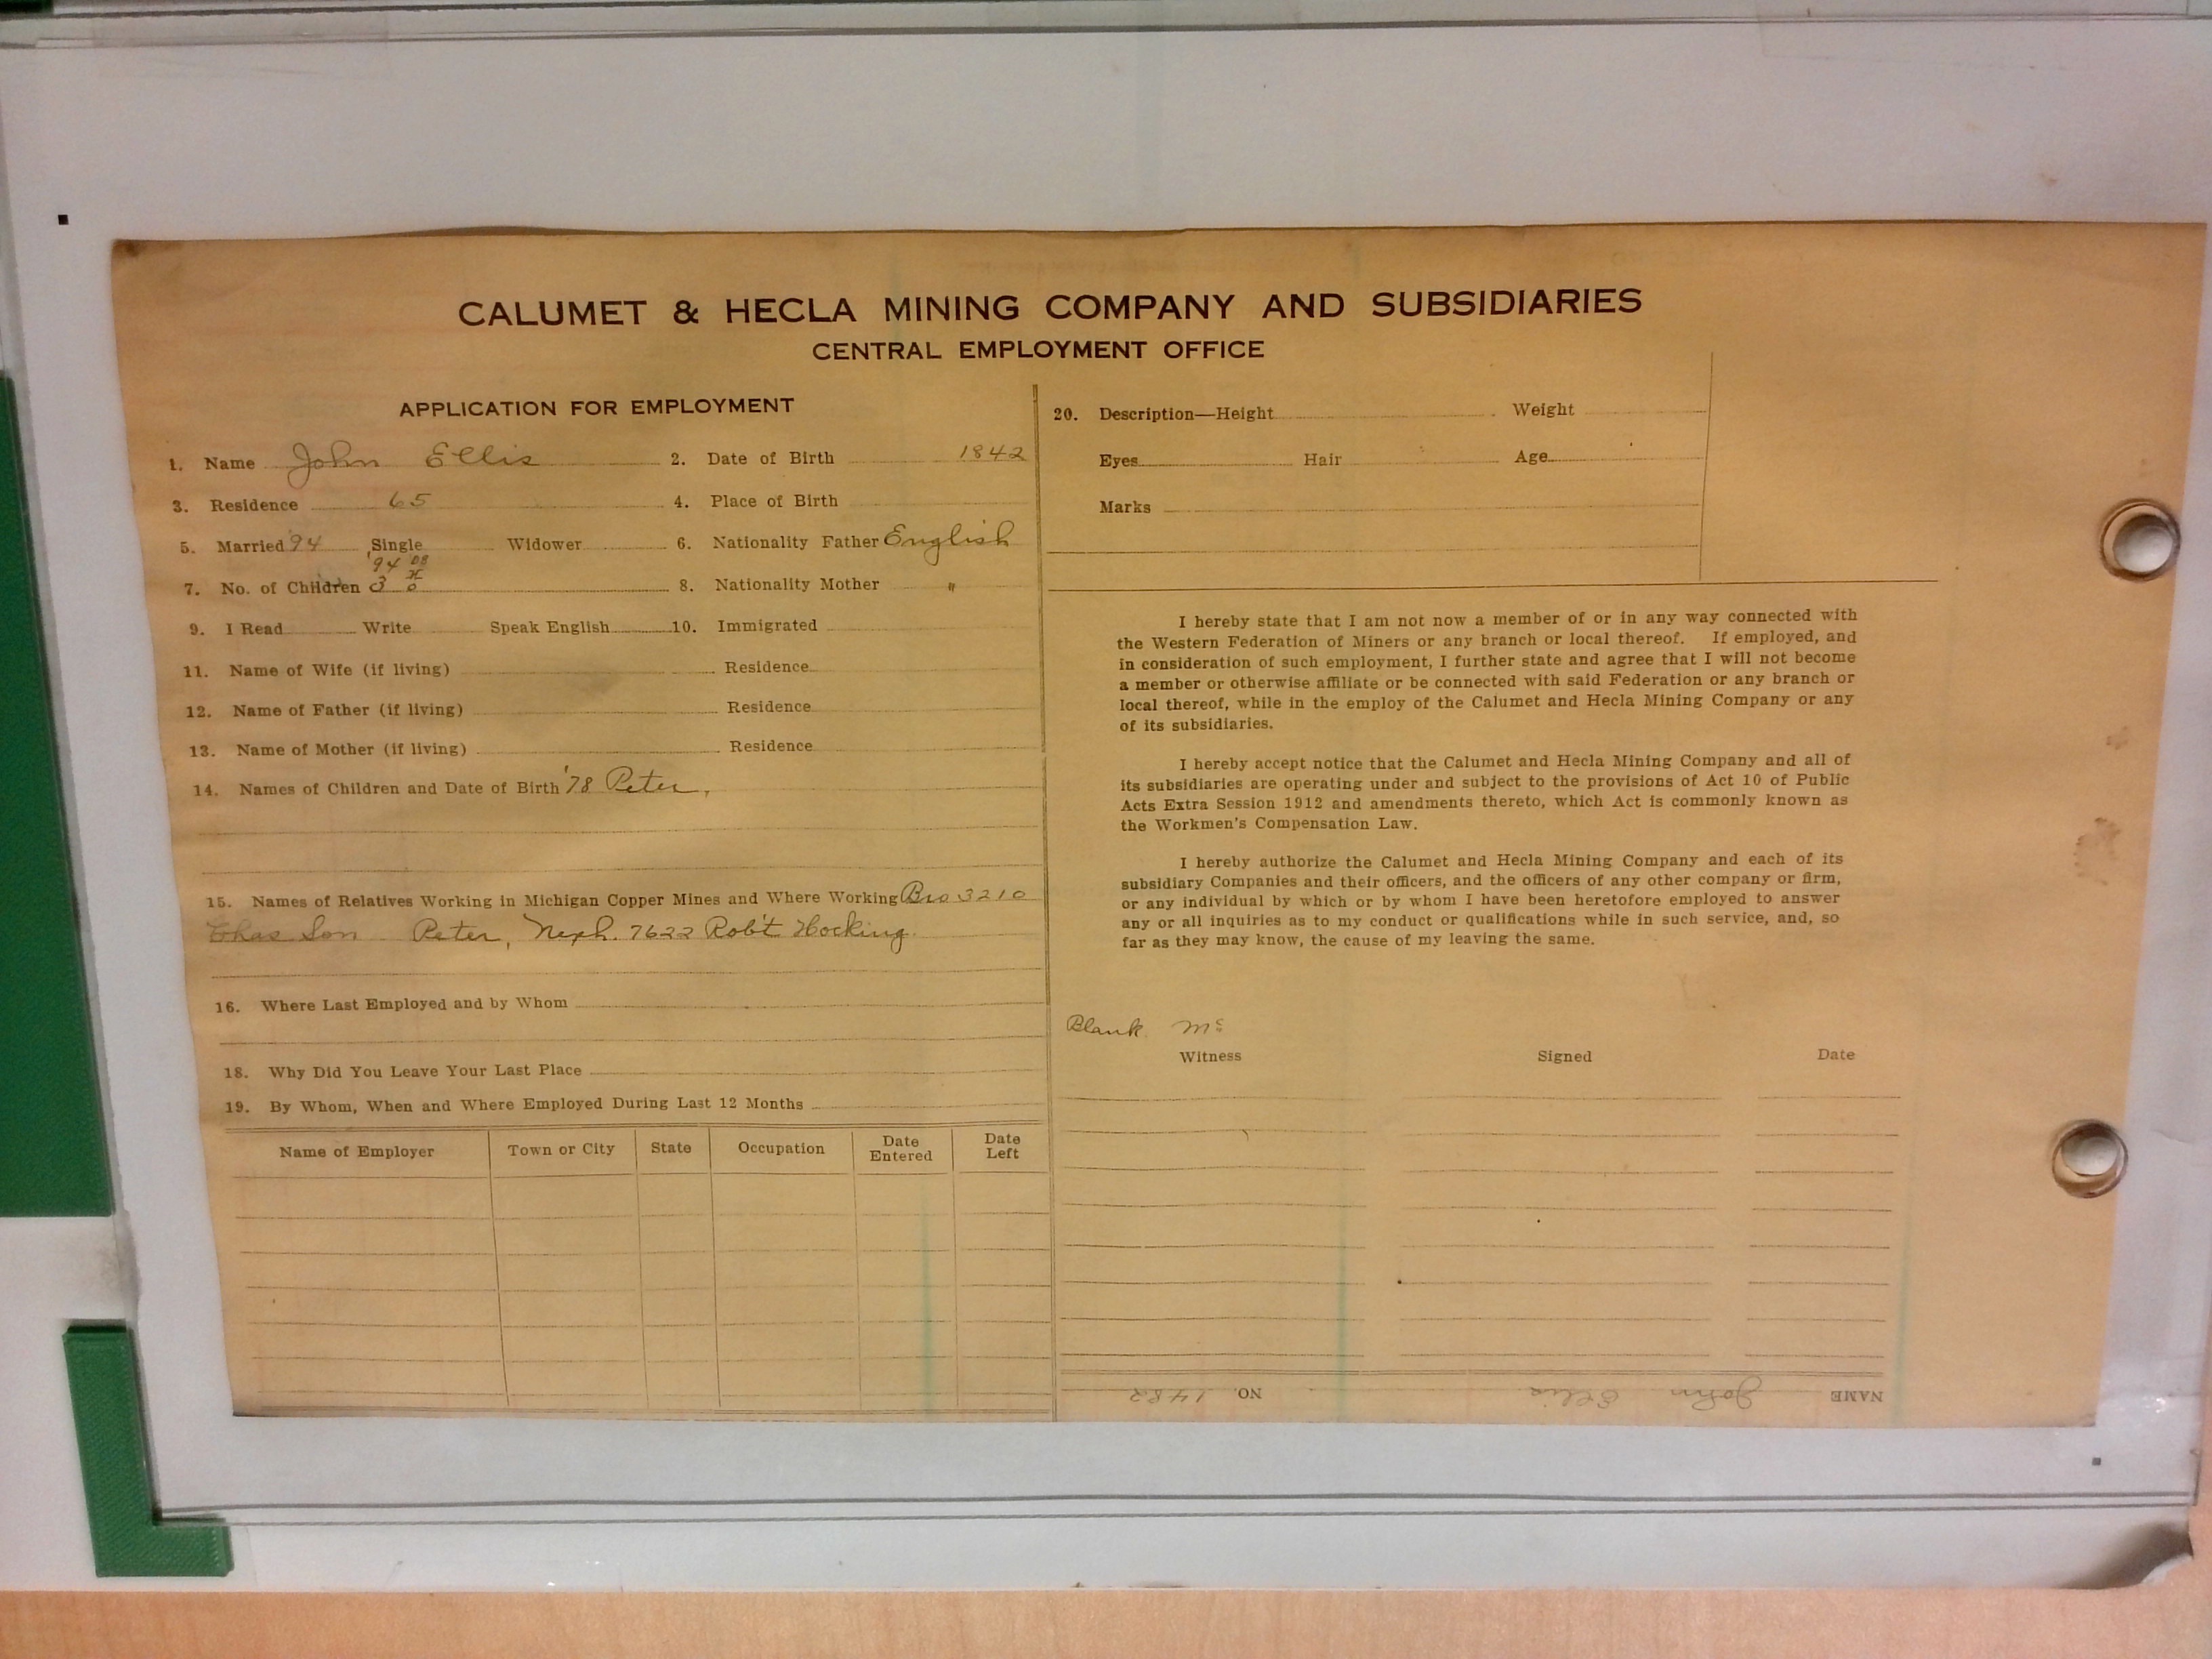 CALUMET & HECLA MINING COMPANY AND SUBSIDIARIES
CENTRAL EMPLOYMENT OFFICE
APPLICATION FOR EMPLOYMENT
1. Name John Ellis 2. Date of Birth 1842
3. Residence 65 4. Place of Birth
5. Married '94 Single Widower 6. Nationality Father English
'94 08
7. No. of Children 3 0 8. Nationality Mother "
9. I Read Write Speak English 10. Immigrated
11. Name of Wife (if living) Residence
12. Name of Father (if living) Residence
13. Name of Mother (if living) Residence
14. Names of Children and Date of Birth '78 Peter,
15. Names of Relatives Working in Michigan Copper Mines and Where Working Bro 3210
Chas Son Peter, Neph. 7622 Rob't Hocking.
16. Where Last Employed and by Whom
18. Why Did You Leave Your Last Place
19. By Whom, When and Where Employed During Last 12 Months
Name of Employer Town or City State Occupation Date Entered Date Left
20. Description—Height Weight
Eyes Hair Age
Marks
I hereby state that I am not now a member of or in any way connected with
the Western Federation of Miners or any branch or local thereof. If employed, and
in consideration of such employment, I further state and agree that I will not become
a member or otherwise affiliate or be connected with said Federation or any branch or
local thereof, while in the employ of the Calumet and Hecla Mining Company or any
of its subsidiaries.
I hereby accept notice that the Calumet and Hecla Mining Company and all of
its subsidiaries are operating under and subject to the provisions of Act 10 of Public
Acts Extra Session 1912 and amendments thereto, which Act is commonly known as
the Workmen's Compensation Law.
I hereby authorize the Calumet and Hecla Mining Company and each of its
subsidiary Companies and their officers, and the officers of any other company or firm,
or any individual by which or by whom I have been heretofore employed to answer
any or all inquiries as to my conduct or qualifications while in such service, and, so
far as they may know, the cause of my leaving the same.
Blank Mc
Witness Signed Date
NAME John Ellis NO. 1482